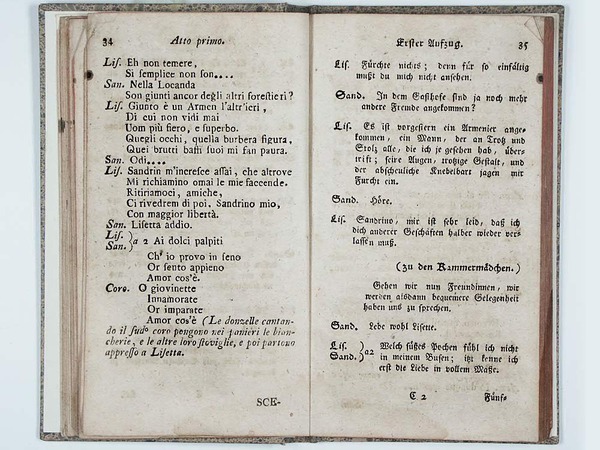 34 Atto primo.
Lis. Eh non temere,
Si semplice non son....
San. Nella Locanda
Son giunti ancor degli altri forestieri?
Lis. Giunto è un Armen l'altr'ieri,
Di cui non vidi mai
Uom più fiero, e superbo.
Quegli occhi, quella burbera figura,
Quei brutti baffi suoi mi fan paura.
San. Odi....
Lis. Sandrin m'incresce assai, che altrove
Mi richiamino omai le mie faccende.
Ritiriamoci, amiche,
Ci rivedrem di poi. Sandrino mio,
Con maggior libertà.
San. Lisetta addio.
Lis. San. } a 2 Ai dolci palpiti
Ch' io provo in seno
Or sento appieno
Amor cos'è.
Coro. O giovinette
Innamorate
Or imparate
Amor cos'è (Le donzelle cantan-
do il sud.º coro pongono nei panieri le bian-
cherie, e le altre loro stoviglie, e poi partono
appresso a Lisetta.
SCE-
Erster Aufzug. 35
Lis. Fürchte nichts; denn für so einfältig
mußt du mich nicht ansehen.
Sand. In dem Gasthofe sind ja noch mehr
andere Fremde angekommen?
Lis. Es ist vorgestern ein Armenier ange-
kommen, ein Mann, der an Trotz und
Stolz alle, die ich je gesehen hab, über-
trift; seine Augen, trotzige Gestalt, und
der abscheuliche Knebelbart jagen mir
Furcht ein.
Sand. Höre.
Lis. Sandrino, mir ist sehr leid, daß ich
dich anderer Geschäften halber wieder ver-
lassen muß.
(zu den Kammermädchen.)
Gehen wir nun Freundinnen, wir
werden alsdann bequemere Gelegenheit
haben uns zu sprechen.
Sand. Lebe wohl Lisette.
Lis. Sand. } a2 Welch süßes Pochen fühl ich nicht
in meinem Busen; itzt kenne ich
erst die Liebe in vollem Maße.
C 2 Fünf-